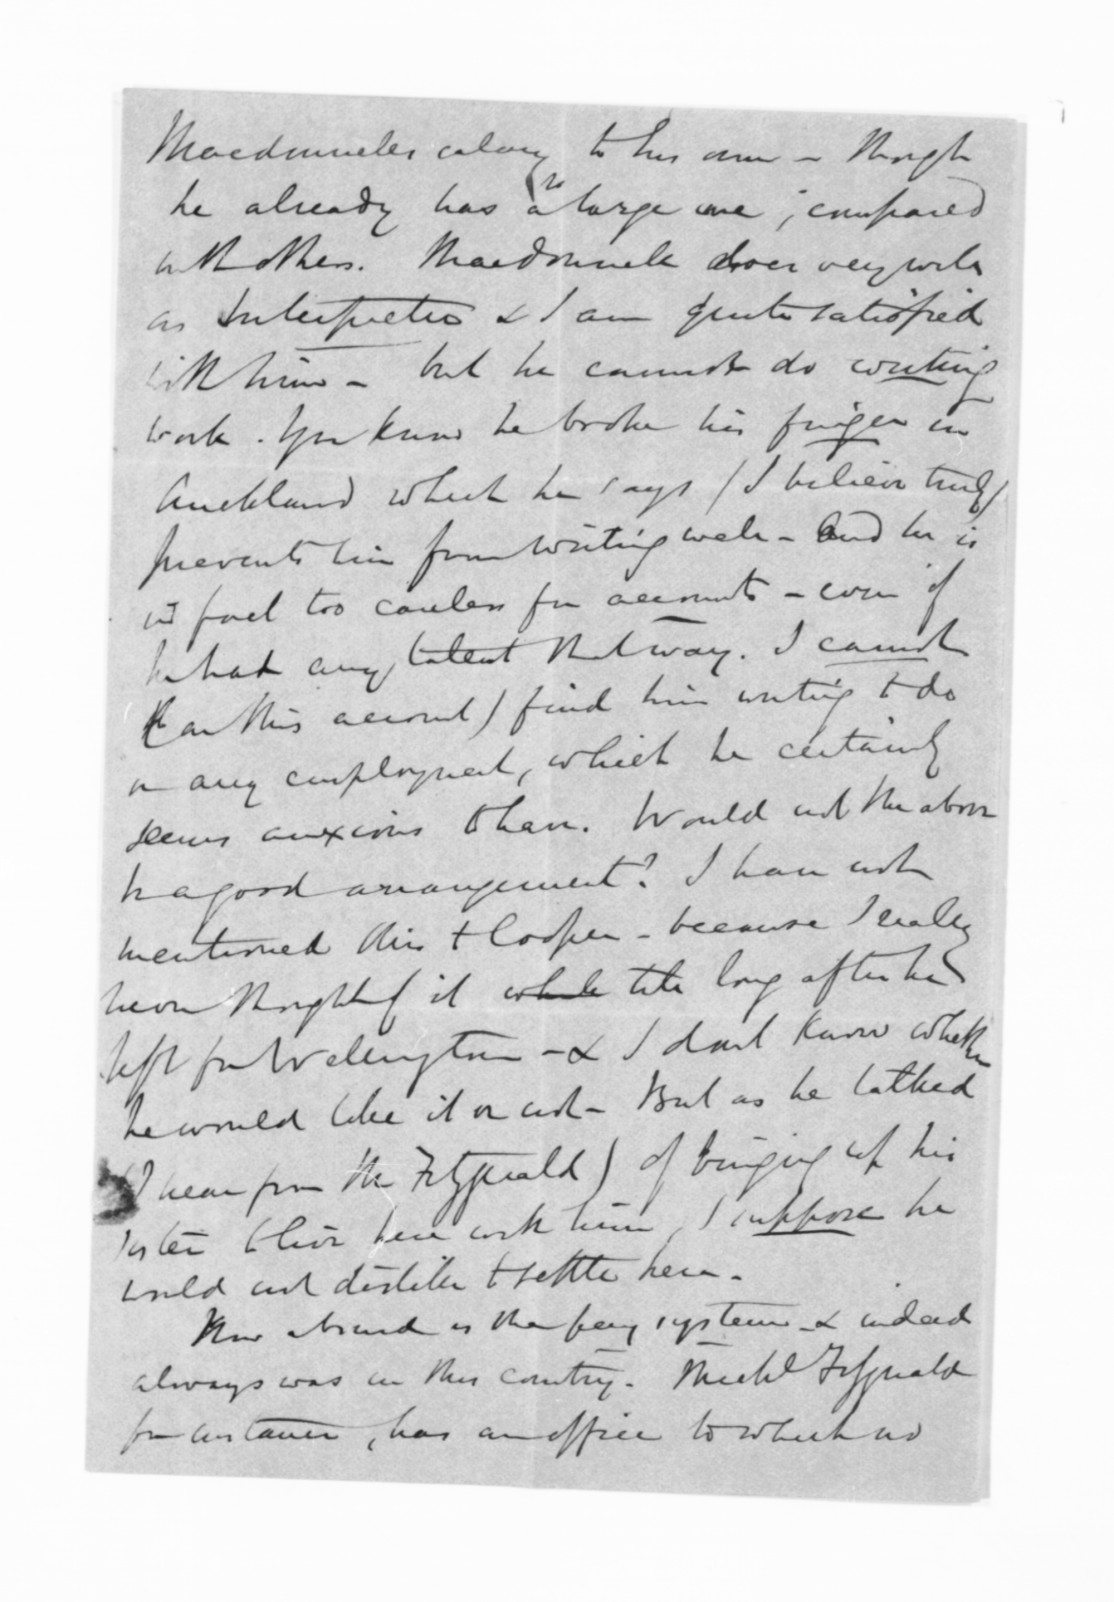 Macdonnells salary to his own - though
he already has a large one, compared
with others. Macdonnell does very well
as Interpreter & I am quite satisfied
with him - but he cannot do writing
work. You know he broke his finger in
Auckland which he says (I believe truly)
prevents him from writing well - And he is
in fact too careless for accounts - even if
he had any talent that way. I cannot
(on this account) find him writing to do
or any employment, which he certainly
seems anxious to have. Would not the above
be a good arrangement? I have not
mentioned this to Cooper - because I really
never thought of it till long after he
left for Wellington - & I dont know whether
he would like it or not - But as he talked
(I hear from the Fitzgerald) of bringing up his
sister to live here with him, I suppose he
would not dislike to settle here.
How absurd is the pay system - & indeed
always was in this country. Michl Fitzgerald
for instance, has an office to which no